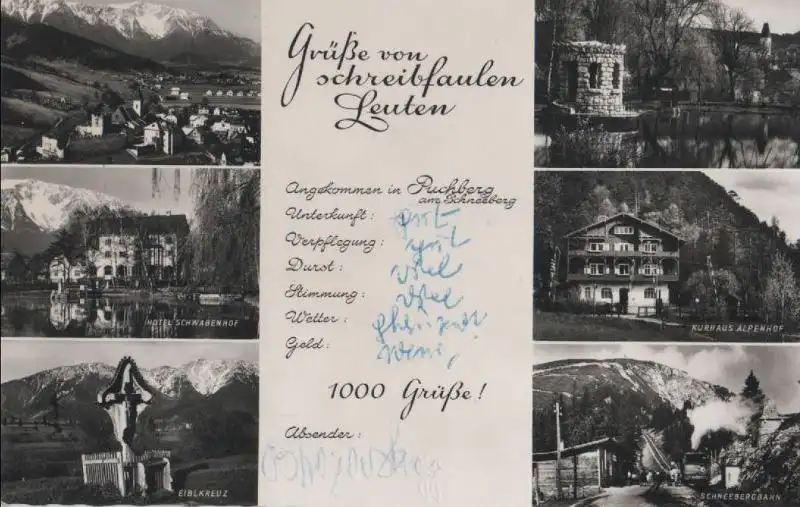 Grüße von
schreibfaulen
Leuten
Angekommen in Puchberg
am Schneeberg
Unterkunft: gut
Verpflegung: gut
Durst: viel
Stimmung: viel
Wetter:
Geld: wenig
1000 Grüße!
Absender:
HOTEL SCHWABENHOF
EIBLKREUZ
KURHAUS ALPENHOF
SCHNEEBERGBAHN